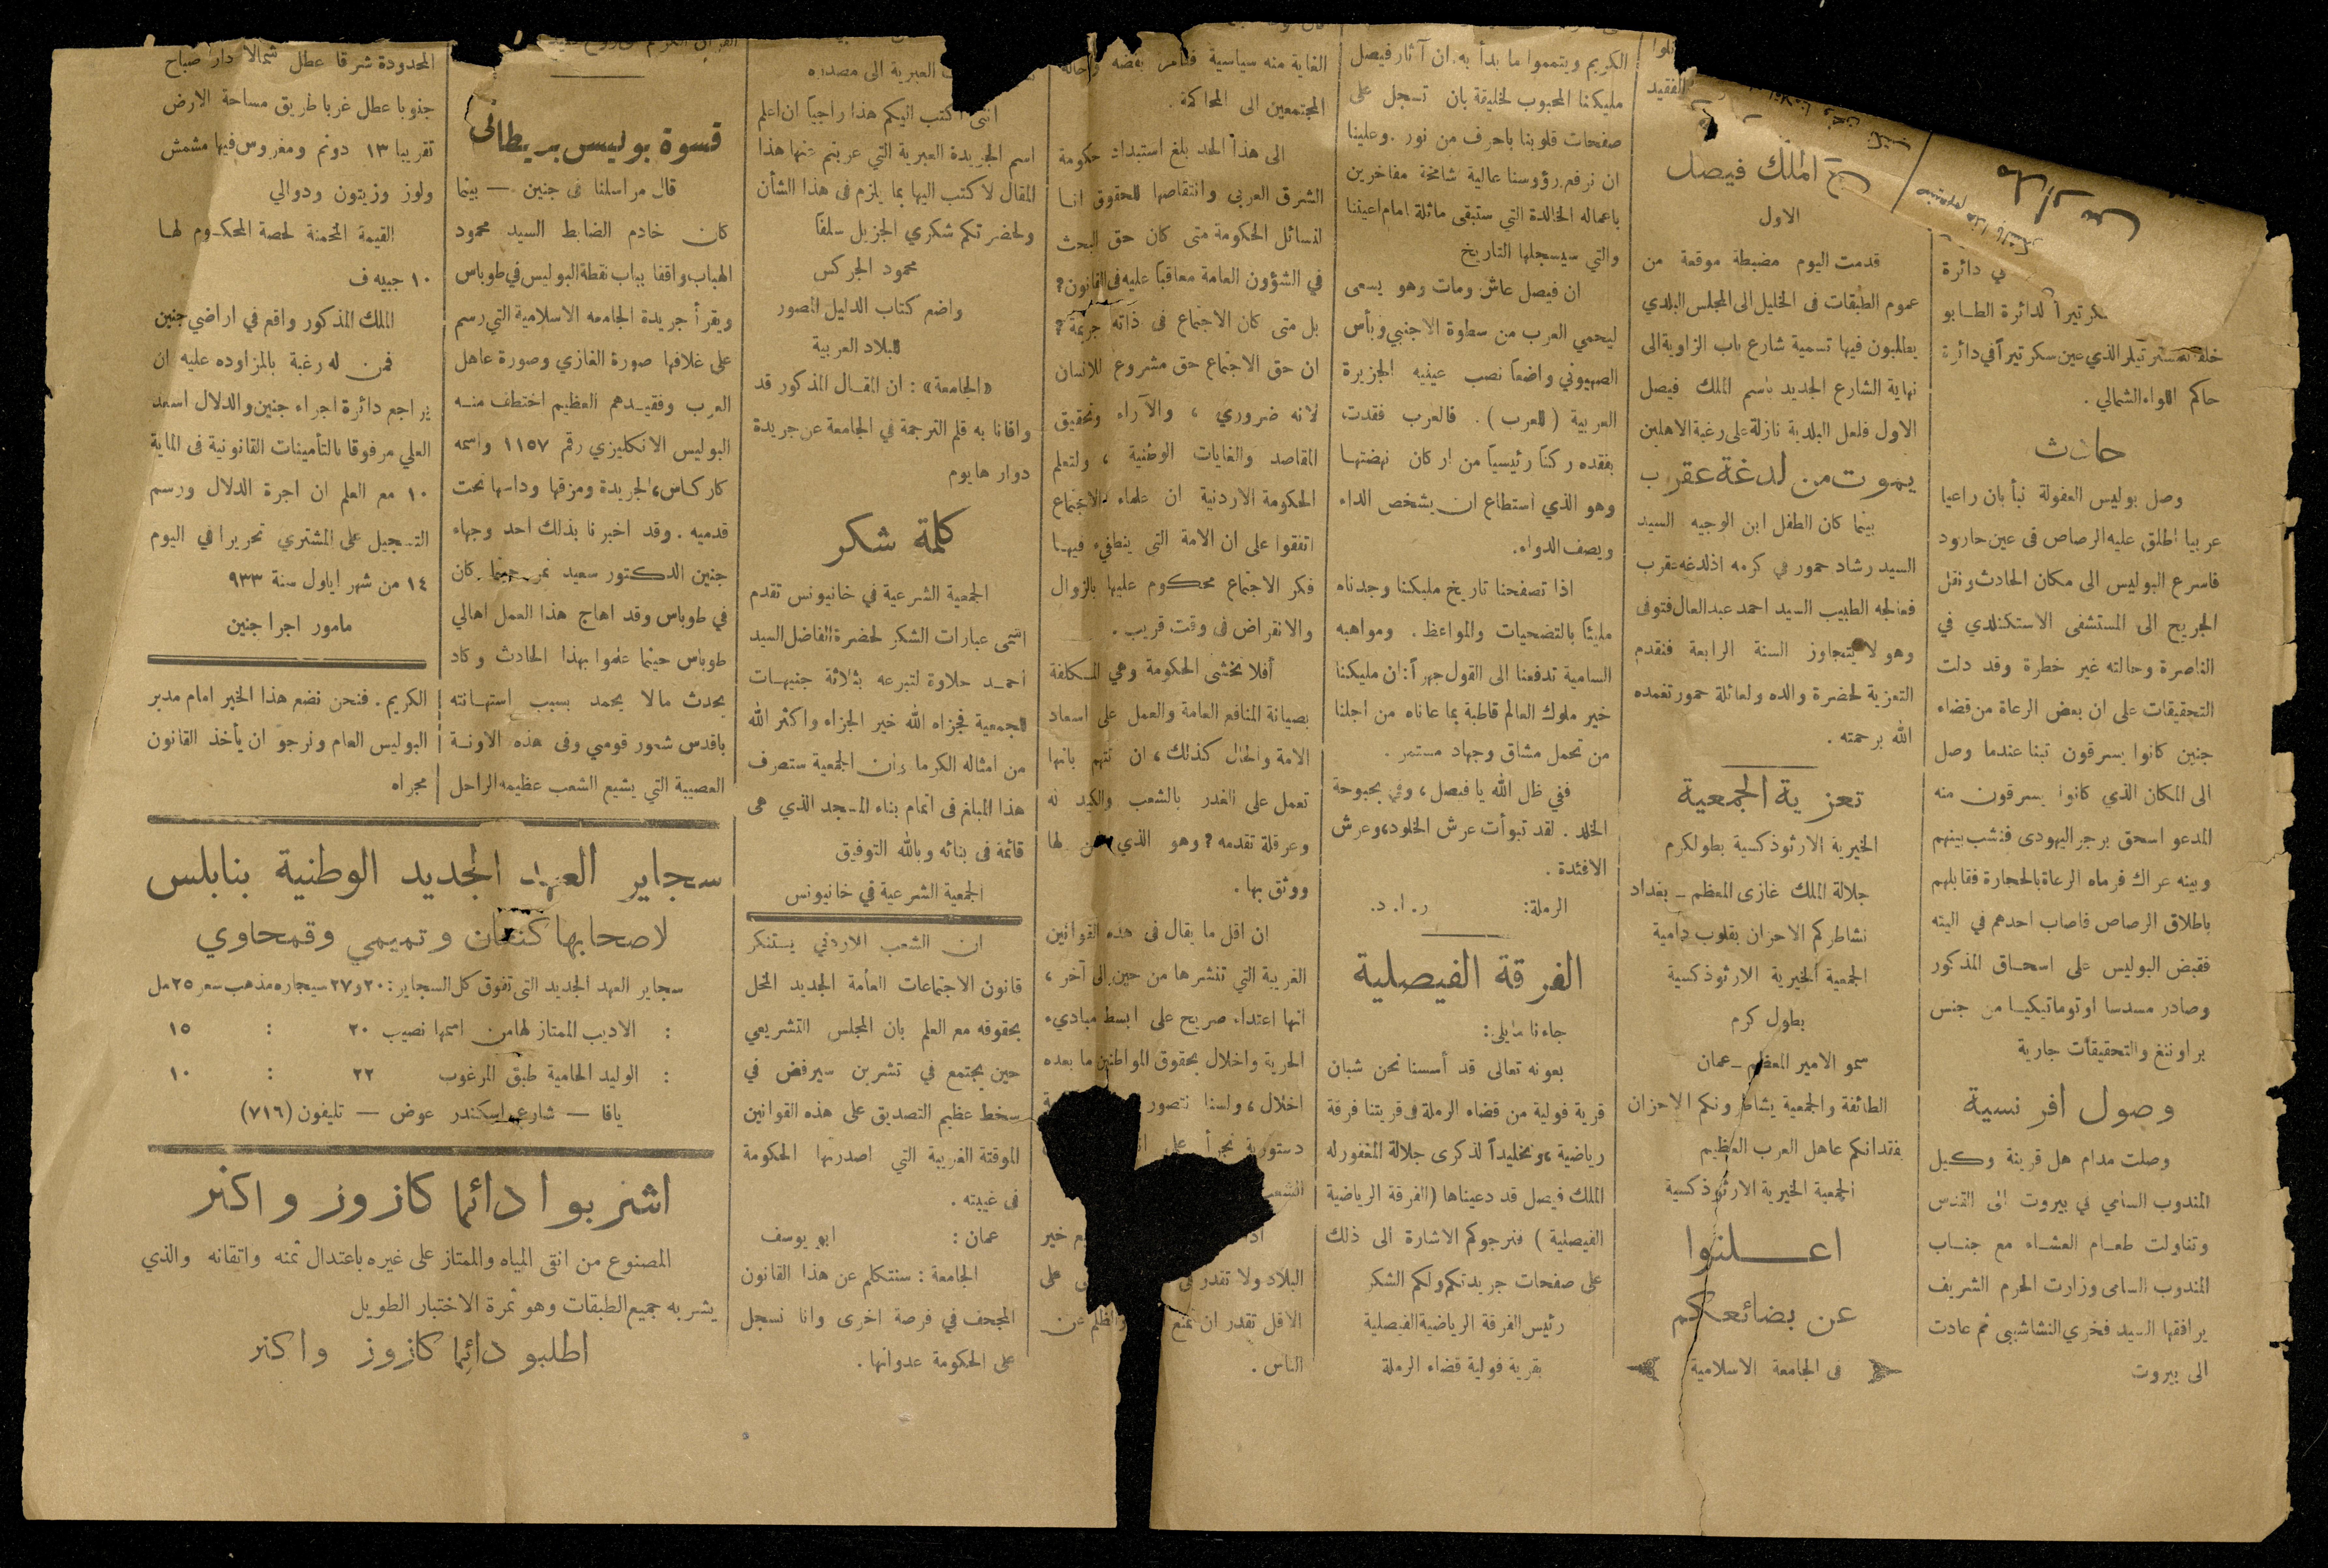 في دائرة
سكرتيراً لدائرة الطابو
خلفا لمستر تيلر الذي عين سكرتيراً في دائرة
حاكم اللواء الشمالي .
حادث
وصل بوليس العفولة نبأ بان راعيا
عربيا اطلق عليه الرصاص فى عين حارود
فاسرع البوليس الى مكان الحادث ونقل
الجريح الى المستشفى الاسكتلندي في
الناصرة وحالته غير خطرة وقد دلت
التحقيقات على ان بعض الرعاة من قضاء
جنين كانوا يسرقون تبنا عندما وصل
الى المكان الذي كانوا يسرقون منه
المدعو اسحق برجر اليهودى فنشب بينهم
وبينه عراك فرماه الرعاة بالحجارة فقابلهم
باطلاق الرصاص فاصاب احدهم في اليته
فقبض البوليس على اسحاق المذكور
وصادر مسدسا اوتوماتيكيا من جنس
براوننغ والتحقيقات جارية
وصول افرنسية
وصلت مدام هل قرينة وكيل
المندوب السامي في بيروت الى القدس
وتناولت طعام العشاء مع جناب
المندوب السامى وزارت الحرم الشريف
يرافقها السيد فخري النشاشيبى ثم عادت
الى بيروت
الفقيد
الملك فيصل
الاول
قدمت اليوم مضبطة موقعة من
عموم الطبقات فى الخليل الى المجلس البلدي
يطلبون فيها تسمية شارع باب الزاوية الى
نهاية الشارع الجديد باسم الملك فيصل
الاول فلعل البلدية نازلة على رغبة الاهلين
يموت من لدغة عقرب
بينما كان الطفل ابن الوجيه السيد
السيد رشاد حمور في كرمه اذ لدغه عقرب
فعالجه الطبيب السيد احمد عبد العال فتوفى
وهو لا يتجاوز السنة الرابعة فنقدم
التعزية لحضرة والده ولعائلة حمور تغمده
الله برحمته .
تعزية الجمعية
الخيرية الارثوذكسية بطولكرم
جلالة الملك غازى المعظم ــ بغداد
نشاطركم الاحزان بقلوب دامية
الجمعية الخيرية الارثوذكسية
بطول كرم
سمو الامير المعظم ــ عمان
الطائفة والجمعية يشاطرونكم الاحزان
بفقدانكم عاهل العرب العظيم
الجمعية الخيرية الارثوذكسية
اعلنوا
عن بضائعكم
فى الجامعة الاسلامية
الكريم ويتمموا ما بدأ به. ان آثار فيصل
مليكنا المحبوب لخليقة بان تسجل على
صفحات قلوبنا باحرف من نور . وعلينا
ان نرفع رؤوسنا عالية شامخة مفاخرين
باعماله الخالدة التي ستبقى ماثلة امام اعيننا
والتي سيسجلها التاريخ
ان فيصل عاش ومات وهو يسعى
ليحمي العرب من سطوة الاجنبي وبأس
الصهيوني واضعاً نصب عينيه الجزيرة
العربية ( للعرب ) . فالعرب فقدت
بفقده ركناً رئيسياً من اركان نهضتها
وهو الذي استطاع ان يشخص الداء
ويصف الدواء.
اذا تصفحنا تاريخ مليكنا وجدناه
مليئاً بالتضحيات والمواعظ . ومواهبه
السامية تدفعنا الى القول جهراً: ان مليكنا
خير ملوك العالم قاطبة بما عاناه من اجلنا
من تحمل مشاق وجهاد مستمر .
ففي ظل الله يا فيصل ، وفي بحبوحة
الخلد . لقد تبوأت عرش الخلود، وعرش
الافئدة .
الرملة: ر . ا . د.
الفرقة الفيصلية
جاءنا ما يلى:
بعونه تعالى قد أسسنا نحن شبان
قرية فولية من قضاء الرملة فى قريتنا فرقة
رياضية، وتخليداً لذكرى جلالة المغفور له
الملك فيصل قد دعيناها ( الفرقة الرياضية
الفيصلية ) فنرجوكم الاشارة الى ذلك
على صفحات جريدتكم ولكم الشكر
رئيس الفرقة الرياضية الفيصلية
بقرية فولية قضاء الرملة
الغاية منه سياسية فتأمر بفضه واحالة
المجتمعين الى المحاكمة .
الى هذا الحد بلغ استبداد حكومة
الشرق العربي وانتقاصها للحقوق انا
لنسائل الحكومة متى كان حق البحث
في الشؤون العامة معاقباً عليه فى القانون؟
بل متى كان الاجتماع فى ذاته جريمة؟
ان حق الاجتماع حق مشروع للانسان
لانه ضروري ، والآراء وتحقيق
المقاصد والغايات الوطنية ، ولتعلم
الحكومة الاردنية ان علماء الاجتماع
اتفقوا على ان الامة التى ينطفىء فيها
فكر الاجتماع محكوم عليها بالزوال
والانقراض فى وقت قريب .
أفلا تخشى الحكومة وهي المكلفة
بصيانة المنافع العامة والعمل على اسعاد
الامة والحال كذلك ، ان تتهم بانها
تعمل على الغدر بالشعب والكيد له
وعرقلة تقدمه ؟ وهو الذي لها
ووثق بها .
ان اقل ما يقال فى هذه القوانين
الغريبة التي تنشرها من حين الى آخر ،
انها اعتداء صريح على ابسط مبادىء
الحرية واخلال بحقوق المواطنين ما بعده
اخلال ، ولسنا نتصور
دستورية تجرأ على
الشعب
خير
البلاد ولا تقدر على
الاقل تقدر ان تمنع والظلم عن
الناس .
العبرية الى مصدره
اننى اكتب اليكم هذا راجياً ان اعلم
اسم الجريدة العبرية التي عربتم عنها هذا
المقال لاكتب اليها بما يلزم فى هذا الشأن
ولحضرتكم شكري الجزيل سلفاً
محمود الجركس
واضع كتاب الدليل المصور
للبلاد العربية
«الجامعة» : ان المقال المذكور قد
وافانا به قلم الترجمة في الجامعة عن جريدة
دوار هايوم
كلمة شكر
الجمعية الشرعية في خانيونس تقدم
اسمى عبارات الشكر لحضرة الفاضل السيد
احمد حلاوة لتبرعه بثلاثة جنيهات
للجمعية فجزاه الله خير الجزاء واكثر الله
من امثاله الكرما وان الجمعية ستصرف
هذا المبلغ فى اتمام بناء المسجد الذي هى
قائمة فى بنائه وبالله التوفيق
الجمعية الشرعية في خانيونس
ان الشعب الاردني يستنكر
قانون الاجتماعات العامة الجديد المخل
بحقوقه مع العلم بان المجلس التشريعي
حين يجتمع في تشرين سيرفض في
سخط عظيم التصديق على هذه القوانين
الموقتة الغريبة التي اصدرتها الحكومة
فى غيبته .
عمان : ابو يوسف
الجامعة : سنتكلم عن هذا القانون
المجحف في فرصة اخرى وانا نسجل
على الحكومة عدوانها .
قسوة بوليس بريطانى
قال مراسلنا فى جنين — بينما
كان خادم الضابط السيد محمود
الهباب واقفا بباب نقطة البوليس في طوباس
ويقرأ جريدة الجامعه الاسلامية التي رسم
على غلافها صورة الغازي وصورة عاهل
العرب وفقيدهم العظيم اختطف منه
البوليس الانكليزي رقم ١١٥٧ واسمه
كاركاس، الجريدة ومزقها وداسها تحت
قدميه . وقد اخبرنا بذلك احد وجهاء
جنين الدكتور سعيد نمر حينما كان
في طوباس وقد اهاج هذا العمل اهالي
طوباس حينما علموا بهذا الحادث وكاد
يحدث مالا يحمد بسبب استهانته
باقدس شعور قومي وفى هذه الاونة
العصيبة التي يشيع الشعب عظيمه الراحل
المحدودة شرقا عطل شمالا دار صباح
جنوبا عطل غربا طريق مساحة الارض
تقريبا ١٣ دونم ومغروس فيها مشمش
ولوز وزيتون ودوالي
القيمة المخمنة لحصة المحكوم لها
١٠ جنيه ف
الملك المذكور واقع في اراضي جنين
فمن له رغبة بالمزاوده عليه ان
يراجع دائرة اجراء جنين والدلال اسعد
العلي مرفوقا بالتأمينات القانونية فى الماية
١٠ مع العلم ان اجرة الدلال ورسم
التسجيل على المشتري تحريرا في اليوم
١٤ من شهر ايلول سنة ٩٣٣
مامور اجرا جنين
الكريم . فنحن نضع هذا الخبر امام مدير
البوليس العام ونرجو ان يأخذ القانون
مجراه
سجاير العهد الجديد الوطنية بنابلس
لاصحابها كنعان وتميمي وقمحاوي
سجاير العهد الجديد التى تفوق كل السجاير : ٢٠ و ٢٧ سيجاره مذهب سعر ٢٥ مل
: الاديب الممتاز لهامن اسمها نصيب ٢٠ : ١٥
: الوليد الحامية طبق المرغوب ٢٢ : ١٠
يافا — شارع اسكندر عوض — تليفون (٧١٦)
اشربوا دائما كازوز واكنر
المصنوع من انقى المياه والممتاز على غيره باعتدال ثمنه واتقانه والذي
يشربه جميع الطبقات وهو ثمرة الاختبار الطويل
اطلبو دائما كازوز واكنر